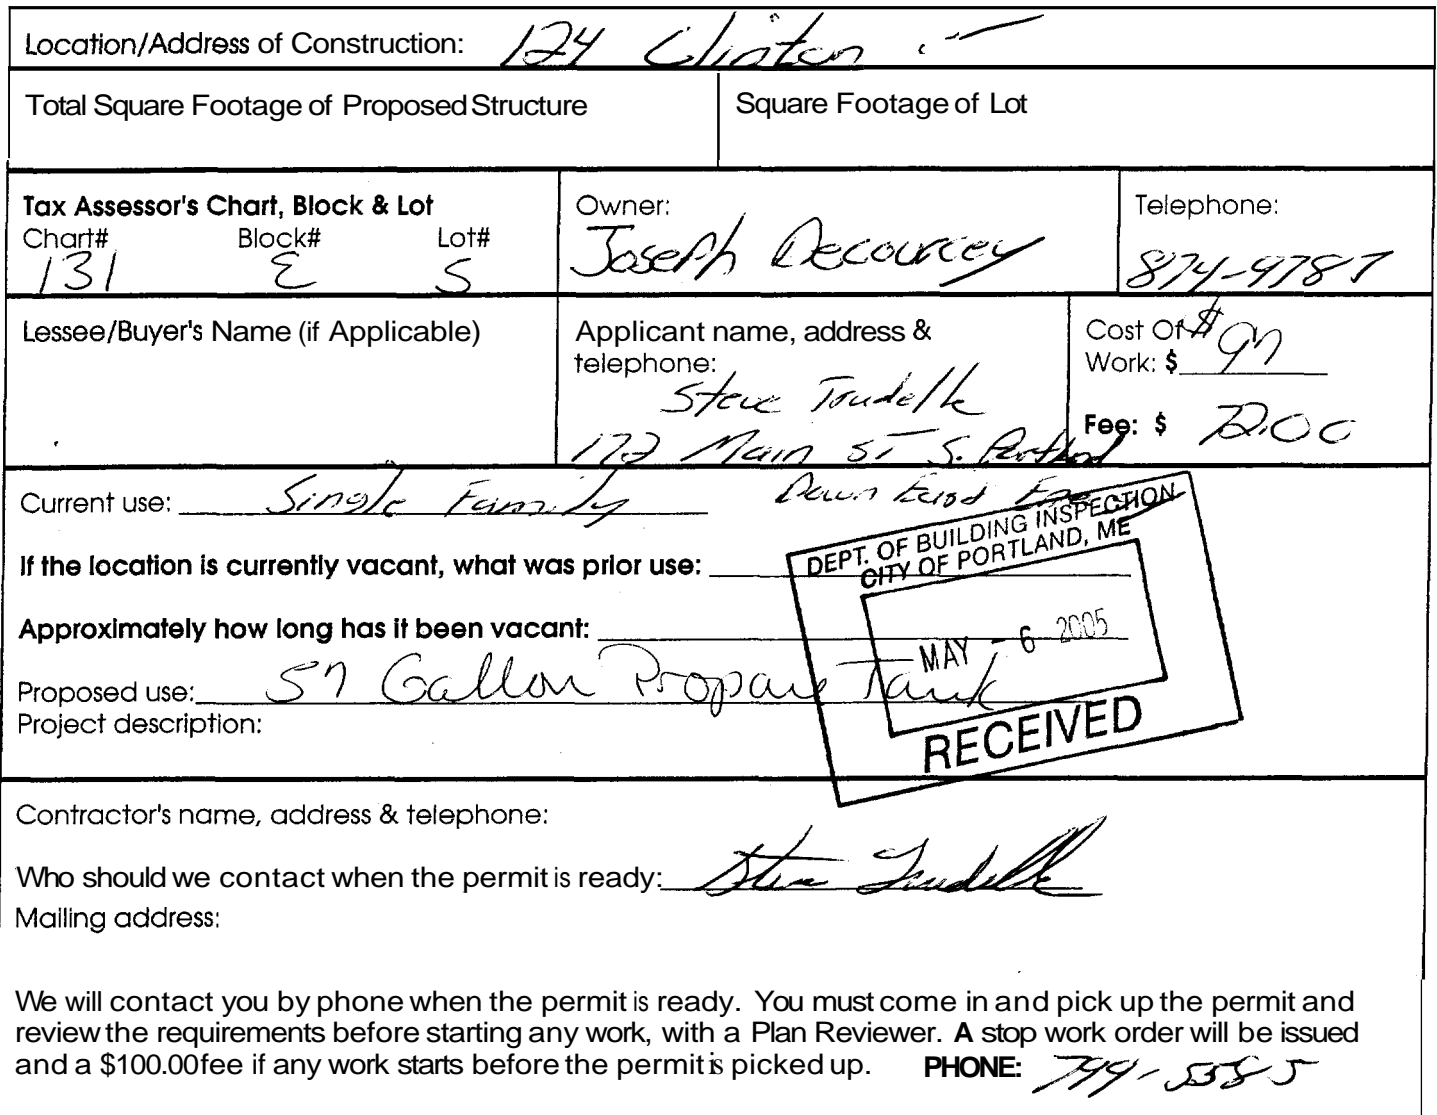 Location/Address of Construction: 124 Clinton
Total Square Footage of Proposed Structure
Square Footage of Lot
Tax Assessor's Chart, Block & Lot
Chart# Block# Lot#
131 E 5
Owner:
Joseph Decourcey
Telephone:
874-9787
Lessee/Buyer's Name (if Applicable)
Applicant name, address &
telephone:
Steve Trudelle
172 Main ST S. Portland
Down East
Cost Of
Work: $
Fee: $
Current use: Single Family
If the location is currently vacant, what was prior use:
Approximately how long has it been vacant:
Proposed use: 57 Gallon Propane Tank
Project description:
DEPT. OF BUILDING INSPECTION
CITY OF PORTLAND, ME
MAY - 6 2005
RECEIVED
Contractor's name, address & telephone:
Who should we contact when the permit is ready: Steve Trudelle
Mailing address:
We will contact you by phone when the permit is ready. You must come in and pick up the permit and
review the requirements before starting any work, with a Plan Reviewer. A stop work order will be issued
and a $100.00 fee if any work starts before the permit is picked up. PHONE: 799-5585